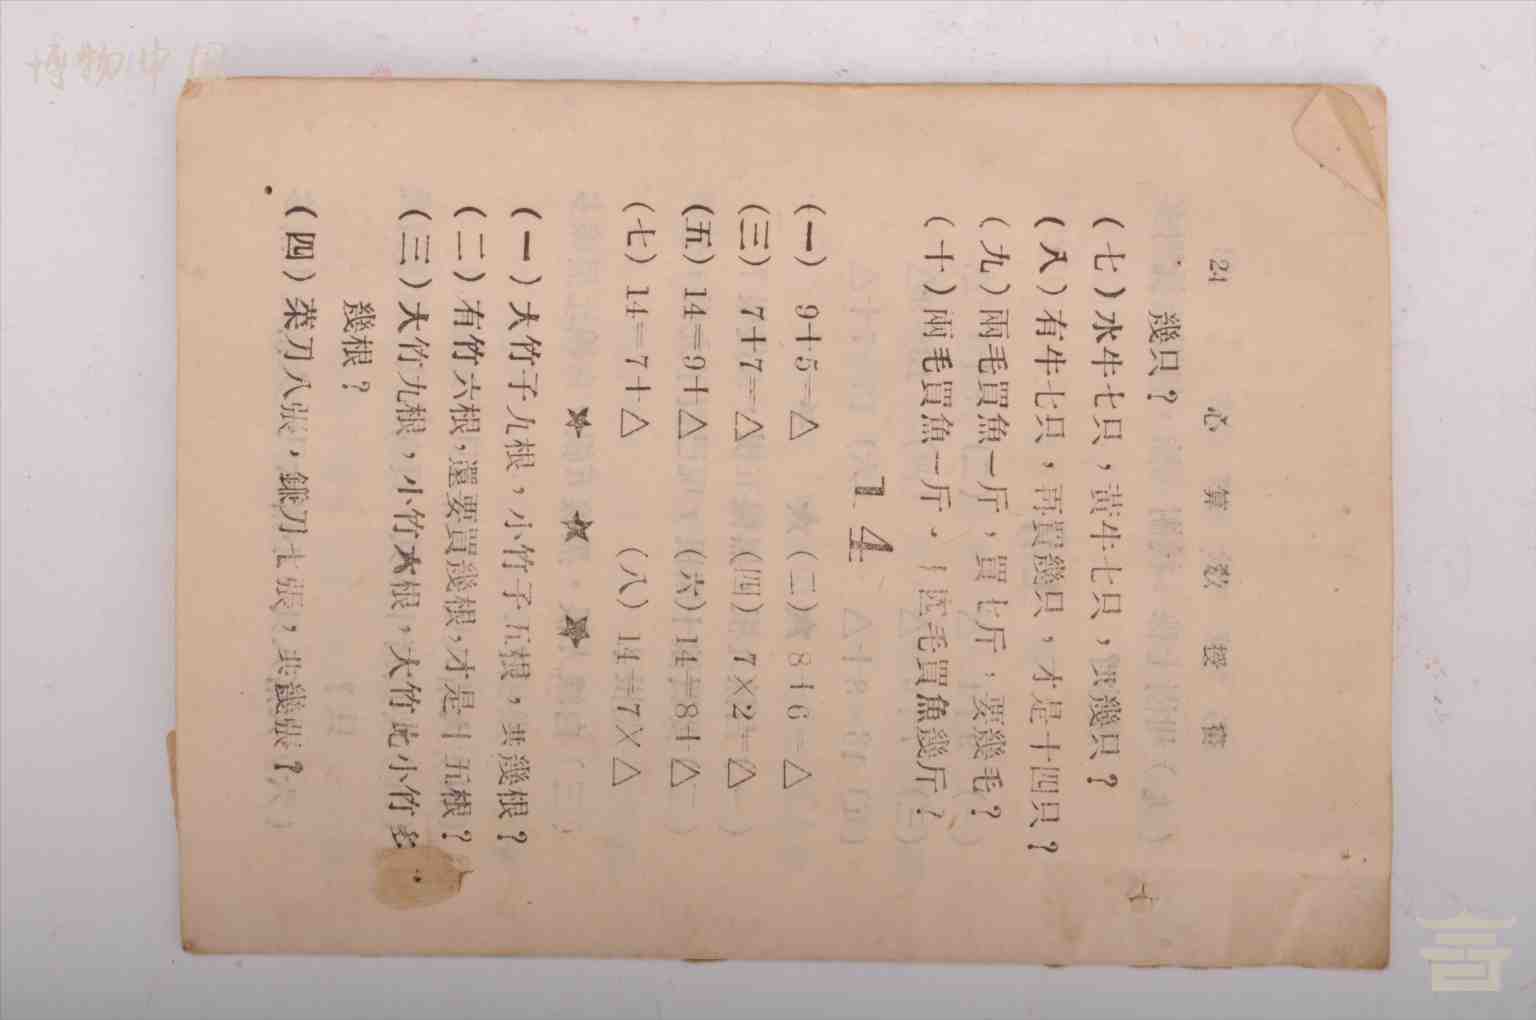 博物中国
24 心算教授術
幾只？
(七)水牛七只，黃牛七只，共幾只？
(八)有牛七只，再買幾只，才是十四只？
(九)兩毛買魚一斤，買七斤，要幾毛？
(十)兩毛買魚一斤，十四毛買魚幾斤？
14
(一) 9+5=△ (二) 8+6=△
(三) 7+7=△ (四) 7×2=△
(五) 14=9+△ (六) 14=8+△
(七) 14=7+△ (八) 14=7×△
★ ★ ★
(一)大竹子九根，小竹子五根，共幾根？
(二)有竹六根，還要買幾根，才是十五根？
(三)大竹九根，小竹六根，大竹比小竹多
幾根？
(四)菜刀八張，鐮刀七張，共幾張？